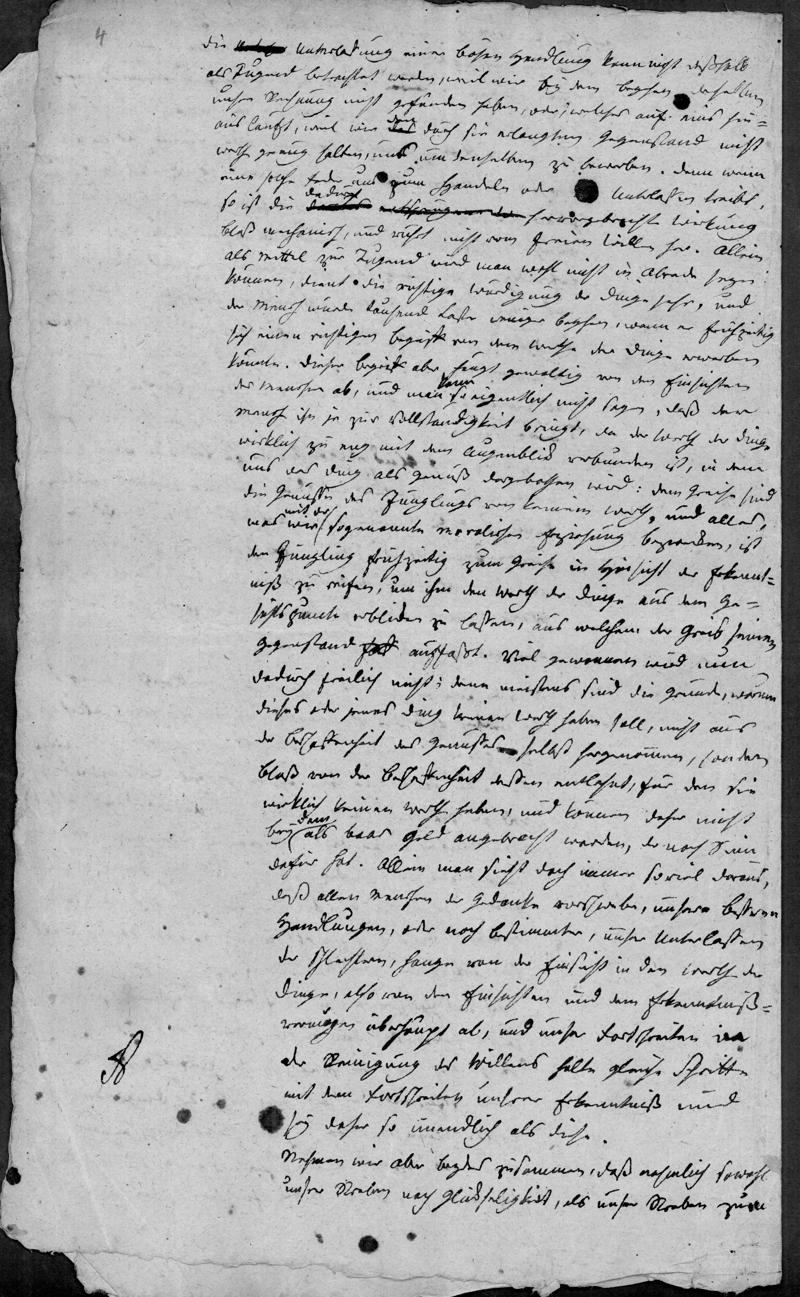 4
die Unterlassung einer bösen Handlung kann nicht deßhalb
als Tugend betrachtet werden, weil wir bey dem begehen derselben
unsre Rechnung nicht gefunden haben, oder, welches auf eins hin=
aus läuft, weil wir den durch sie erlangten Gegenstand nicht
werth genug halten, uns um denselben zu bewerben. Denn wenn
eine solche Feder uns zum Handeln oder Unterlassen treibt,
so ist die dadurch hervorgebrachte Wirkung
bloß mechanisch, und rührt nicht vom freien Willen her. Allein
als Mittel zur Tugend wird man wohl nicht in Abrede seyn
können, dient die richtige Würdigung der Dinge sehr, und
der Mensch würde tausend Laster weniger begehen, wenn er frühzeitig
sich einen richtigen begriff von dem Werthe der Dinge erwerben
könnte. Dieser begriff aber hängt gewaltig von den Einsichten
des Menschen ab, und man kann so eigentlich nicht sagen, daß der
Mensch ihn je zur Vollständigkeit bringt, da der Werth der Dinge
wirklich zu eng mit dem Augenblick verbunden ist, in dem
uns das Ding als Genuß dargebothen wird: dem Greise sind
die Genüsse des Jünglings von keinem Werth, und alles,
was wir mit der sogenannten moralischen Erziehung bezwecken, ist
den Jüngling frühzeitig zum Greise in Hinsicht der Erkennt=
niß zu reifen, um ihm den Werth der Dinge aus dem Ge=
sichtspuncte erblicken zu lassen, aus welchem der Greis seinen
Gegenstand auffaßt. Viel gewonnen wird nun
dadurch freilich nicht; denn meistens sind die Gründe, warum
dieses oder jenes Ding keinen Werth haben soll, nicht aus
der beschaffenheit des Genusses selbst hergenommen, sondern
bloß von der beschaffenheit dessen entlehnt, für den sie
wirklich keinen Werth haben, und können daher nicht
bey dem als baar Geld angebracht werden, der noch Sinn
dafür hat. Allein man sieht doch immer soviel daraus,
daß allen Menschen der Gedanke vorschwebe, unsere bessern
Handlungen, oder noch bestimmter, unser Unterlassen
der schlechtern, hange von der Einsicht in den Werth der
Dinge, also von den Einsichten und dem Erkenntniß=
vermögen überhaupt ab, und unser Fortschreiten in
der Reinigung des Willens halte gleiche Schritte
mit dem Fortschreiten unserer Erkenntniß und
sey daher so unendlich als diese.
Nehmen wir aber beydes zusammen, daß nehmlich sowohl
unser Streben nach Glückseligkeit, als unser Streben zum